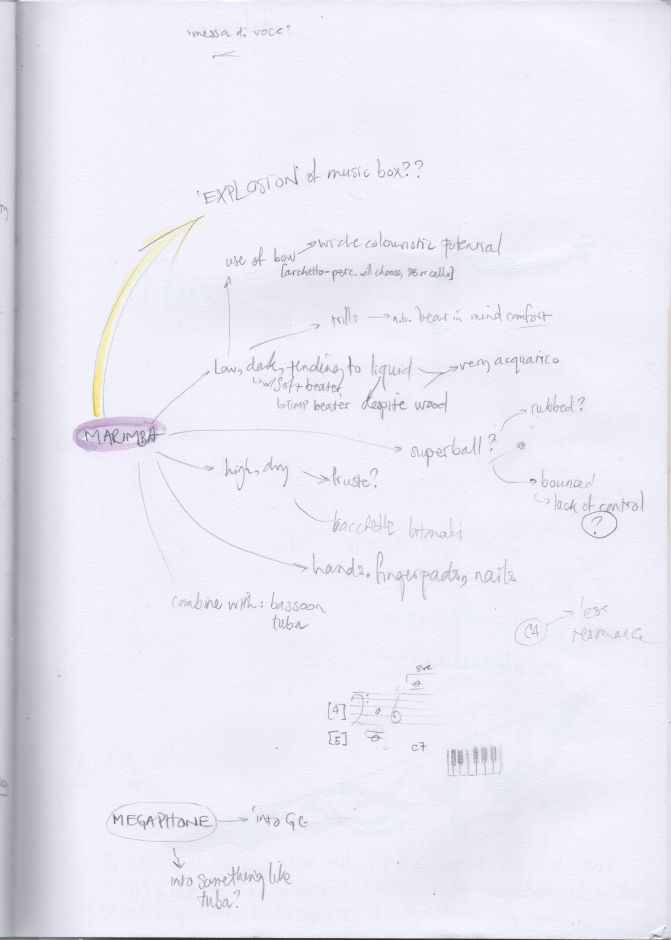 'messa di voce'
'EXPLOSION' of music box??
use of bow
wide colouristic potential
[archetto-perc. will choose, DB or cello]
trills
n.b. bear in mind comfort
Low, dark, tending to liquid
very acquarico
w/ soft beater
TIMP beater
despite wood
MARIMBA
superball?
rubbed?
bounced
lack of control
?
high, dry
fruste?
bacchette
hands, fingerpads, nails
combine with: bassoon
tuba
C4
less
resonance
8ve
[4]
[5]
C7
MEGAPHONE
into GC
into something like
tuba?